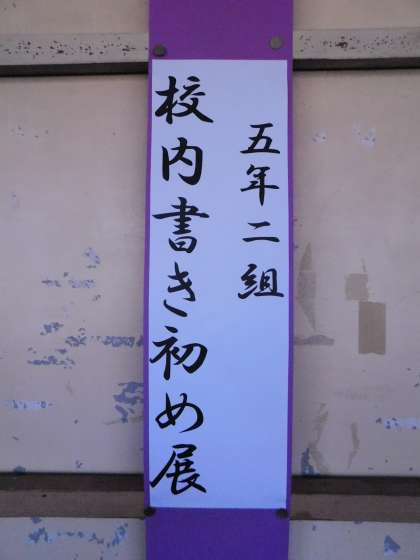 五年二組
校内書き初め展